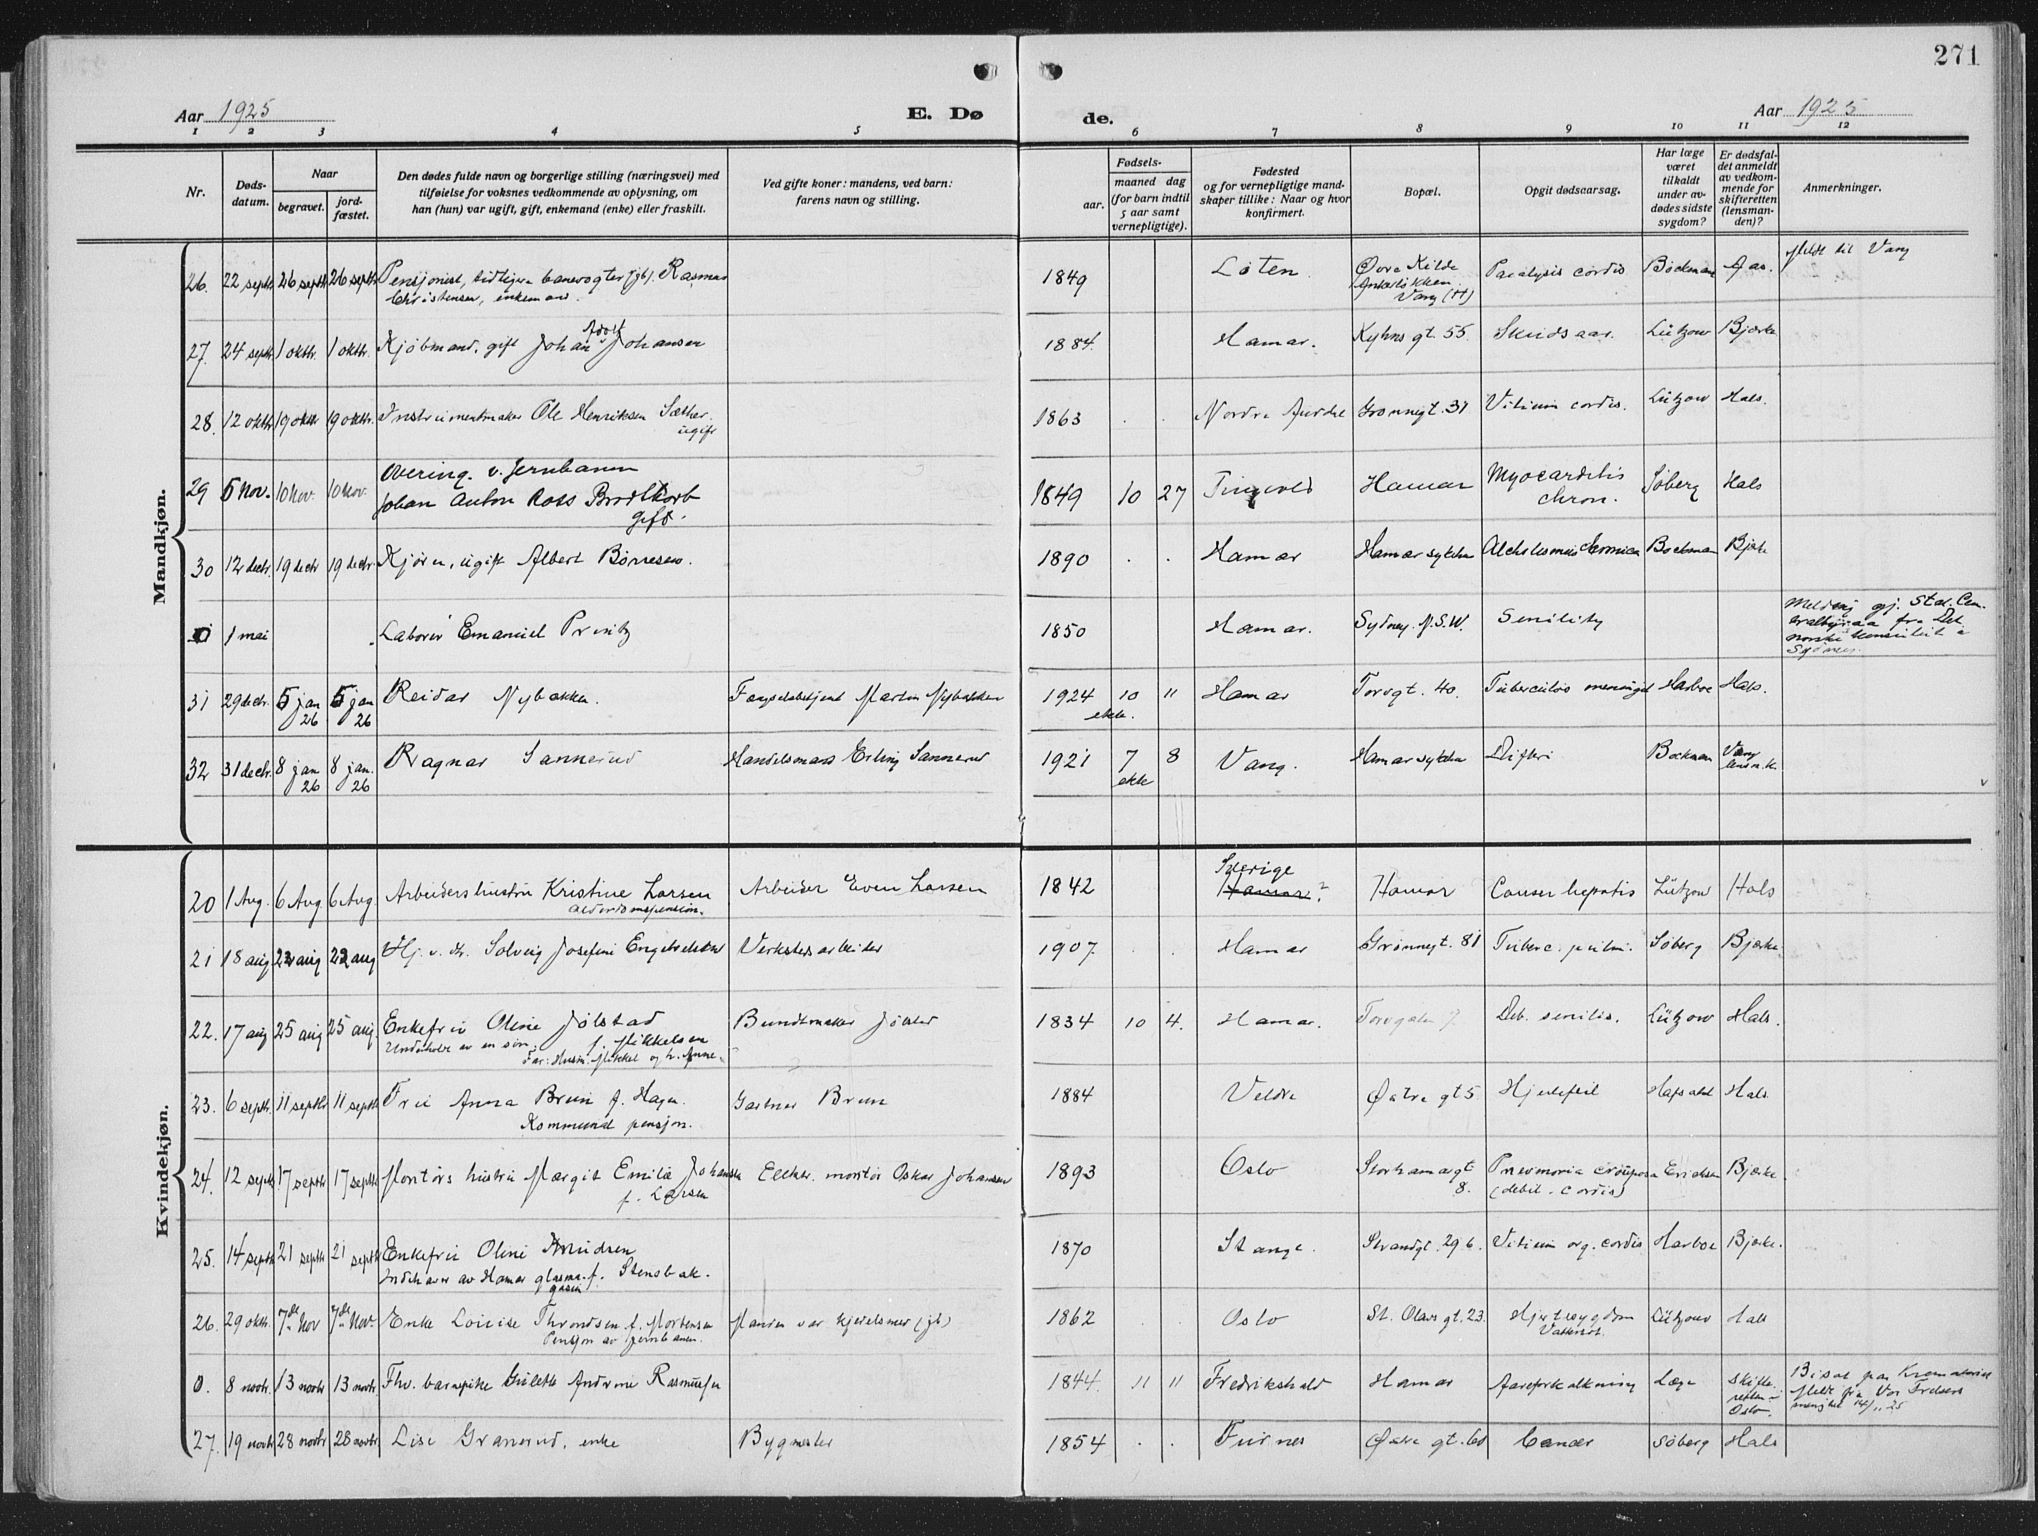 271
Aar 1925 E. Dø de. Aar 1925
1 2 3 4 5 6 7 8 9 10 11 12
Nr. Døds-datum. Naar begravet. jord-fæstet. Den dødes fulde navn og borgerlige stilling (næringsvei) med tilføielse for voksnes vedkommende av oplysning, om han (hun) var ugift, gift, enkemand (enke) eller fraskilt. Ved gifte koner: mandens, ved barn: farens navn og stilling. Fødsels- aar. maaned dag (for barn indtil 5 aar samt vernepligtige). Fødested og for vernepligtige mand-skaper tillike: Naar og hvor konfirmert. Bopæl. Opgit dødsaarsag. Har læge været tilkaldt under av-dødes sidste sygdom? Er dødsfal-det anmeldt av vedkom-mende for skifteretten (lensman-den)? Anmerkninger.
Mandkjøn.
26. 22 septr 26 septr 26 septr Pensjonist, tidligere banevogter (jb). Rasmus Christensen, enkemand. 1849 Løten. Øvre Kilde Vang (H) Paralysis cordis Bockman Aas. Meldt til Vang
27. 24 septr 1 oktr. 1 oktr. Kjøbmand, gift Johan Adolf Johansen 1884. Hamar. Kyhns gt. 55. Skudsaar. Lützow Bjerke
28. 12 oktr 19 oktr 19 oktr. Instrumentmaker Ole Henriksen Sæther. ugift 1863 . . Nordre Aurdal Grønnegt. 31 Vitium cordis. Lützow Hals.
29 5 Nov. 10 Nov. 10 Nov. Overing. v. Jernbanen Johan Anton Ross Brodtkorb gift. 1849 10 27 Tingvold Hamar Myocarditis chron. Søberg Hals
30 12 decbr. 19 decbr 19 decbr. Kjører, ugift Albert Børresen. 1890 . . Hamar Hamar sykehus Alcholismus chronica Bockman Bjerke
0 1 mai Laborer Emanuel Printz 1850 Hamar. Sydney. N.S.W. Senility Melding gj. Stat. Cen-tralbyraa fra Det norske konsulat i Sydney.
31 29 decbr. 5 jan 26 5 jan 26 Reidar Nybakken. Fængselsbetjent Martin Nybakken 1924 10 11 ekte. Hamar Torvgt. 40. Tuberculøs meningit Harboe Hals.
32 31 decbr. 8 jan 26 8 jan. 26 Ragnar Sannerud Handelsmand Erling Sannerud 1921 7 8 ekte Vang. Hamar sykehus Difteri Bockman Vang lensm.k.
Kvindekjøn.
20 1 Aug. 6 Aug 6 Aug. Arbeiderhustru Kristine Larsen Alderdomspension. Arbeider Even Larsen 1842 Sverige Hamar? Hamar Cancer hepatis Lützow Hals
21 18 aug 22 aug 22 aug Hj. v. dr. Solveig Josefine Engebretsen Verkstedsarbeider 1907. . . Hamar Grønnegt. 81 Tuberc. pulm. Søberg Bjerke.
22. 17 aug 25 aug 25 aug. Enkefru Oline Jølstad f. Mikkelsen Underholdt av en søn. Far: Husm. Mikkel og h. Anne Bundtmaker Jølstad 1834 10 4. Hamar. Torvgaten 7. Deb. senilis. Lützow Hals.
23. 6 septr. 11 septbr 11 septr. Fru Anna Brun f. Hagen. Kommunal pensjon. Gartner Brun 1884 Veldre Østre gt 5. Hjertefeil Hafsahl Hals
24. 12 septr. 17 septbr 17 septr. Montørs hustru Margit Emilie Johansen f. Larsen Elektr. montør Oskar Johansen 1893 . . Oslo Storhamargt 8. Pneumonia crouposa (debil. cordis) Ericksen Bjerke.
25. 14 septr. 21 septr 21 septr Enkefru Oline Knudsen f. Stensbak. Indehaver av Hamar glasmagasin 1870 Stange. Strandgt. 29 b. Vitium org. cordis Harboe Bjerke.
26. 29 oktr. 7de Nov 7de Nov. Enke Louise Throndsen f. Mortensen Pensjon av Jernbanen. Manden var kjedelsmed (jb) 1862 . . Oslo St. Olavs gt. 23. Hjertesygdom Vattersot. Lützow Hals
0. 8 novbr. 13 novbr 13 novbr. Fhv. barnepike Gulette Andrine Rasmussen 1844. 11 11 Fredrikshald Hamar Aareforkalkning Læge Skifteretten i Oslo. Bisat paa Krematoriet Meldt fra Vor Frelsers menighet
27. 19 novbr 28 novbr 28 novbr. Lise Granerud, enke Bygmester 1854 . . Furnes Østre gt. 60 Cancer Søberg Hals